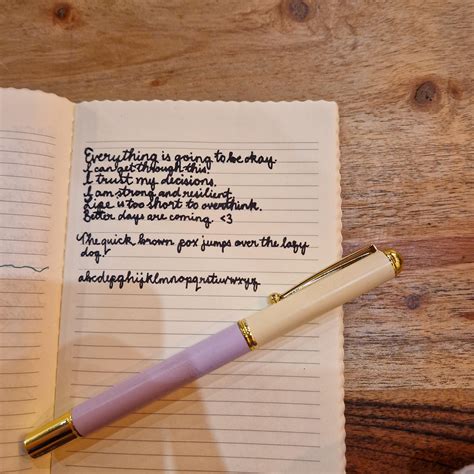 Everything is going to be okay.
I can get through this!
I trust my decisions.
I am strong and resilient.
Life is too short to overthink.
Better days are coming <3
The quick brown fox jumps over the lazy
dog!
abcdefghijklmnopqrstuvwxyz